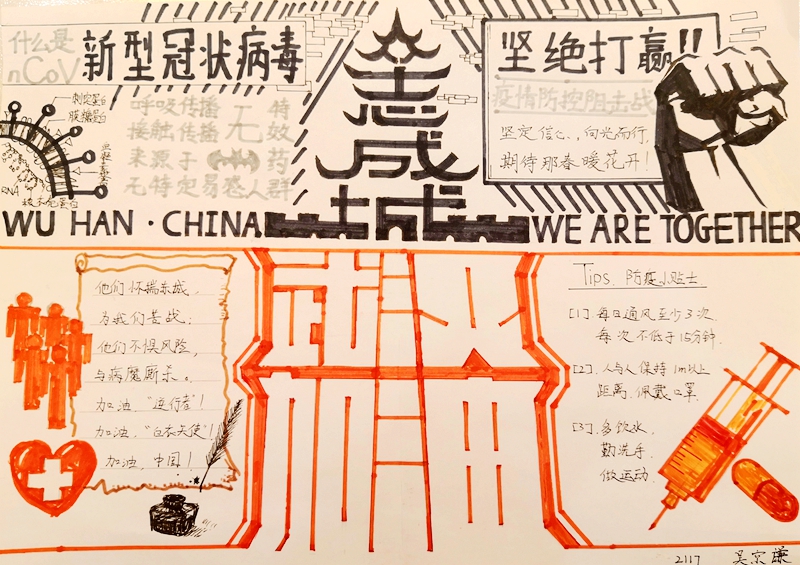 什么是
nCoV
新型冠状病毒
刺突蛋白
RNA
呼吸传播
接触传播
无特效药
来源于
无特定易感人群
众志成城
坚绝打赢!!
疫情防控阻击战
坚定信心,向光而行,
期待那春暖花开!
WU HAN · CHINA
WE ARE TOGETHER
他们怀揣赤诚,
为我们苦战;
他们不惧风险,
与病魔厮杀。
加油,"逆行者"!
加油,"白衣天使"!
加油,中国!
Tips. 防疫小贴士
[1] 每日通风至少3次
每次不低于15分钟.
[2]. 人与人保持1m以上
距离,佩戴口罩.
[3]. 多饮水,
勤洗手,
做运动.
2117 吴宗谦